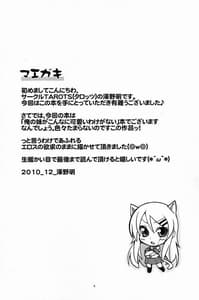 マエガキ
初めましてこんにちわ、
サークルTAROTS(タロッツ)の澤野明です。
今回はこの本を手にとっていただき有難うございます♪
さてでは、今回の本は
「俺の妹がこんなに可愛いわけがない」本でございます
なんでしょう、色々たまらないのですこの作品ッ!
っと言うわけであふれる
エロスの欲求のままに描かせて頂きました(◎w◎)
生暖かい目で最後まで読んで頂けると嬉しいです(*´ω`*)
2010_12_澤野明